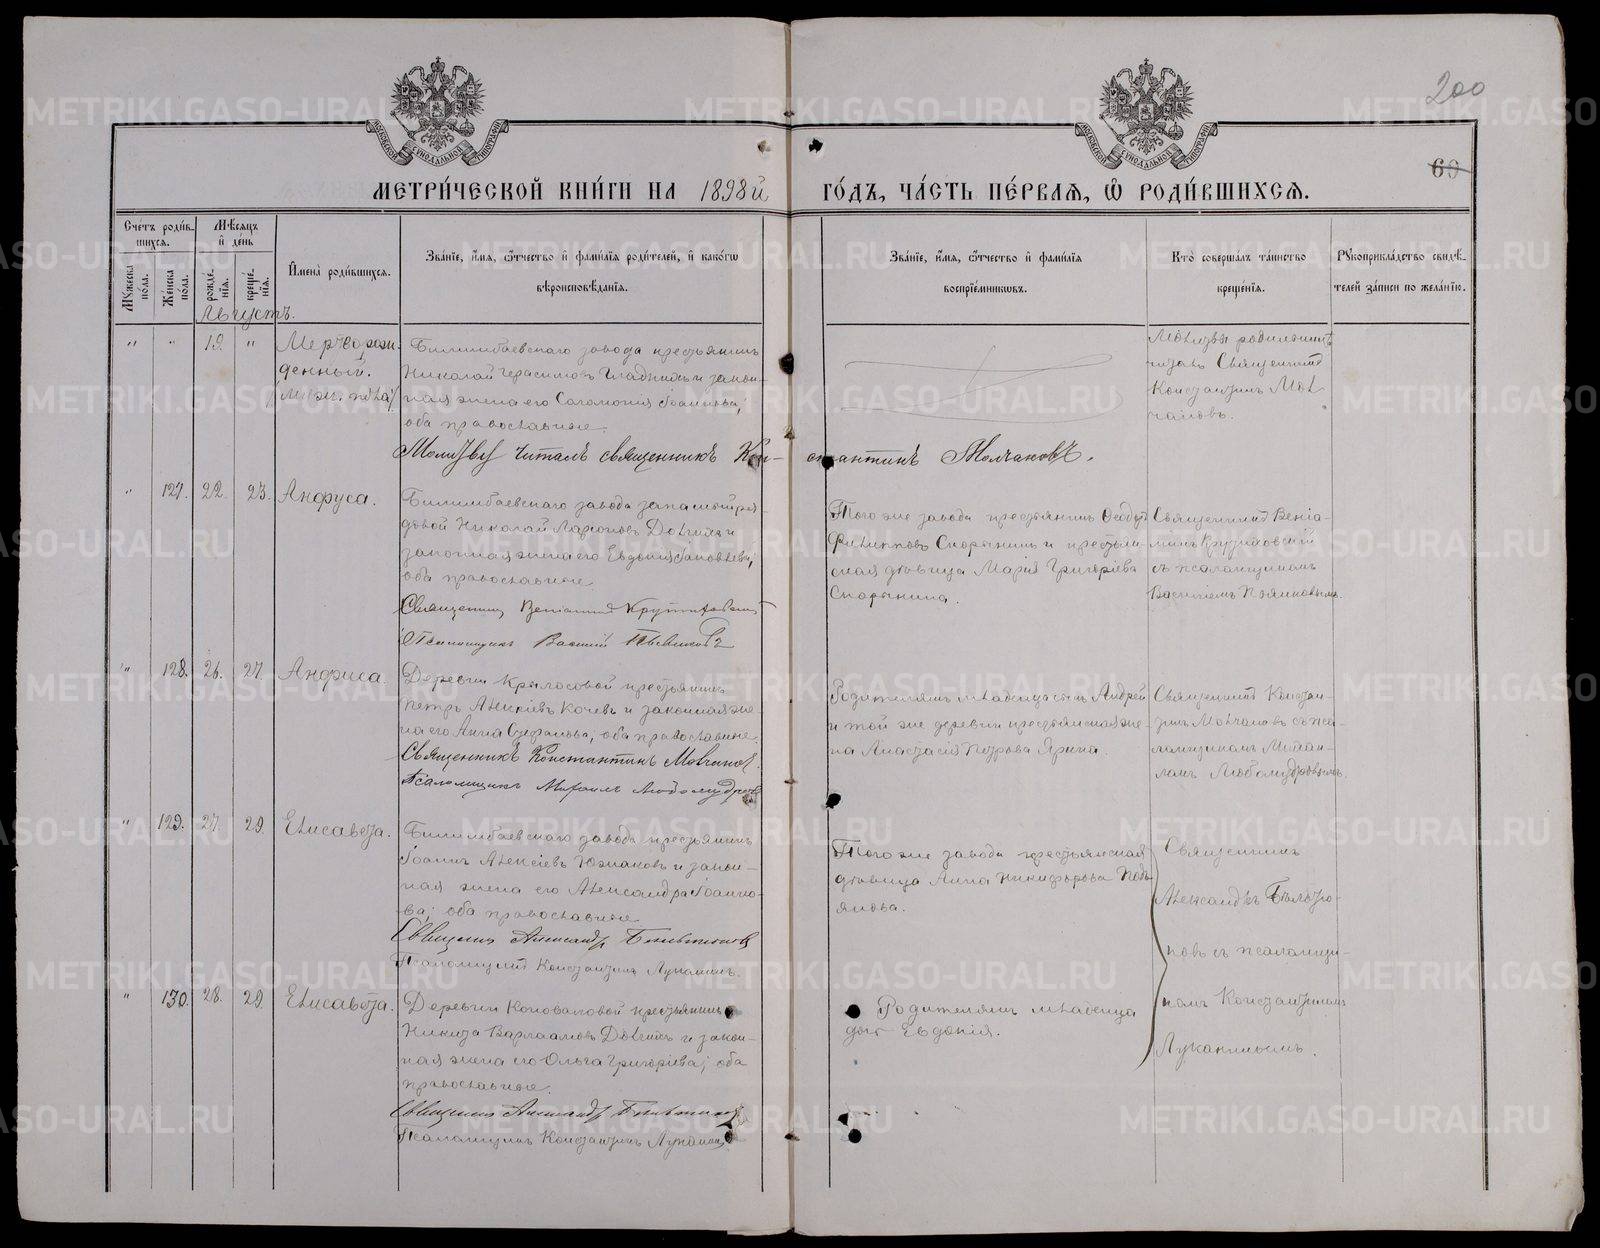 200
60
МЕТРИ́ЧЕСКОЙ КНИ́ГИ НА 1898й ГО́ДЪ, ЧА́СТЬ ПЕ́РВАЯ, Ѡ РОДИ́ВШИХСЯ.
Сче́тъ роди́вшихся.
Мѣ́сяцъ и де́нь
Му́жеска по́ла.
Же́нска по́ла.
рожде́нїя.
креще́нїя.
И́мена роди́вшихся.
Зва́нїе, и́мя, ѻ́тчество и фами́лїя роди́телей, и како́гѡ
вѣроисповѣ́данїя.
Зва́нїе, и́мя, ѻ́тчество и фами́лїя
воспрїе́мниковъ.
Кто̀ соверша́лъ та́инство
креще́нїя.
Рꙋкоприкла́дство свидѣ́-
телей за́писи по жела́нїю.
Августъ.
" " 19. " Мертворож-
денный.
(муж. пола)
Билимбаевскаго завода крестьянинъ
Николай Герасимовъ Гладкихъ и закон-
ная жена его Соломонія Іоаннова;
оба православные.
Молитвы родильницѣ
читалъ Священникъ
Константинъ Мол-
чановъ.
Молитву читалъ священникъ Кон-стантинъ Молчановъ.
" 127. 22. 23. Анфуса.
Билимбаевскаго завода запасный ря-
довой Николай Ларіоновъ
законная жена его Евдокія
оба православные
Священникъ Веніаминъ Крутиховскій
Псаломщикъ Василій
Того же завода крестьянинъ Ѳеодоръ
Филипповъ Скорынинъ и крестьян-
ская дѣвица Марія Григоріева
Скорынина.
Священникъ Веніа-
минъ Крутиховскій
съ псаломщикомъ
Василіемъ
" 128. 26. 27. Анфиса.
Деревни Крылосовой крестьянинъ
Петръ Алексіевъ Кочевъ и законная же-
на его Анна Стефанова, оба православные.
Священникъ Константинъ Молчановъ.
Псаломщикъ Михаилъ Любомудровъ
Родителямъ младенца сынъ Андрей
и той же деревни крестьянская же-
на Анастасія Петрова Ярина.
Священникъ Констан-
тинъ Молчановъ съ пса-
ломщикомъ Михаи-
ломъ Любомудровымъ.
" 129. 27. 29. Елисавета.
Билимбаевскаго завода крестьянинъ
Іоаннъ Алексіевъ Южаковъ и закон-
ная жена его Александра Іоанно-
ва; оба православные
Священникъ Александръ
Псаломщикъ Константинъ Луканинъ.
Того же завода крестьянская
дѣвица Анна Никифорова Подъ-
янова.
Священникъ
Александръ
новъ съ псаломщи-
комъ Константиномъ
Луканинымъ.
" 130. 28. 29. Елисавета.
Деревни Коноваловой крестьянинъ
Никита Варлаамовъ и закон-
ная жена его Ольга Григоріева; оба
православные
Священникъ Александръ
Псаломщикъ Константинъ Луканинъ
Родителямъ младенца
дочь Евдокія.
METRIKI.GASO-URAL.RU